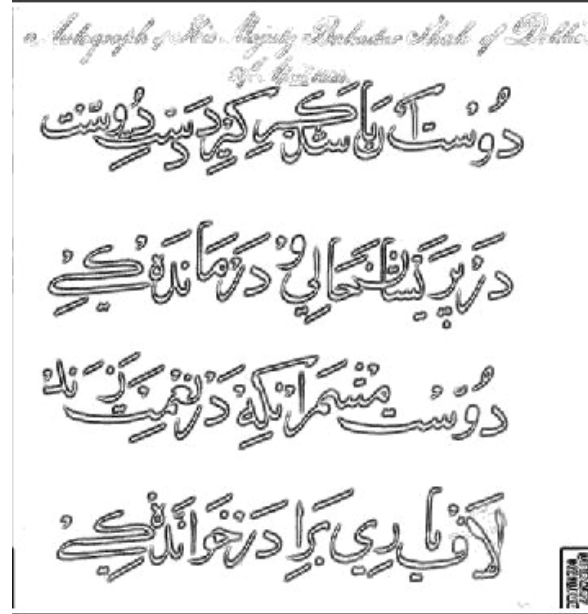 Autograph of His Majesty Bahadur Shah of Dehli
دوست آن با کہ گیرد دَستِ دوست
دَر پَریسان حالِي و دَرماندَہ كِي
دوست مشمر آنکِه دَر نعمت زند
لاف یاري برادر خواندَہ كِي